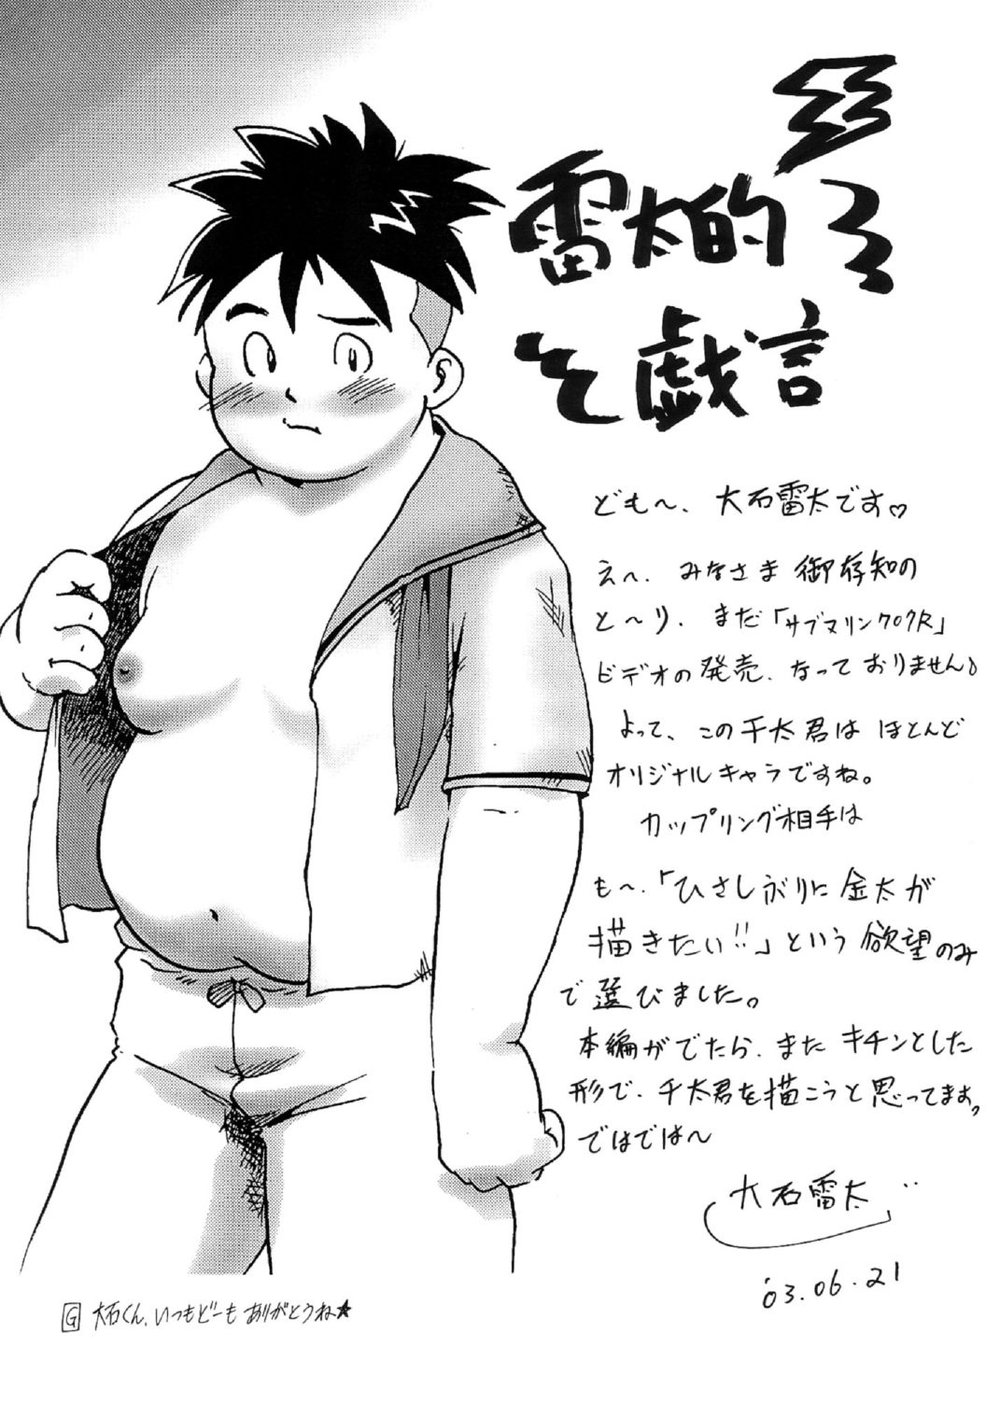 雷太的
戯言
ども〜、大石雷太です♡
え〜、みなさま御存知の
と〜り、まだ「サブマリン707R」
ビデオの発売、なっておりません。
よって、この千太君はほとんど
オリジナルキャラですね。
カップリング相手は
も〜、「ひさしぶりに金太が
描きたい!!」という欲望のみ
で選びました。
本編がでたら、またキチンとした
形で、千太君を描こうと思ってます。
ではでは〜
大石雷太
'03.06.21
G 大石くん、いつもどーもありがとうね★